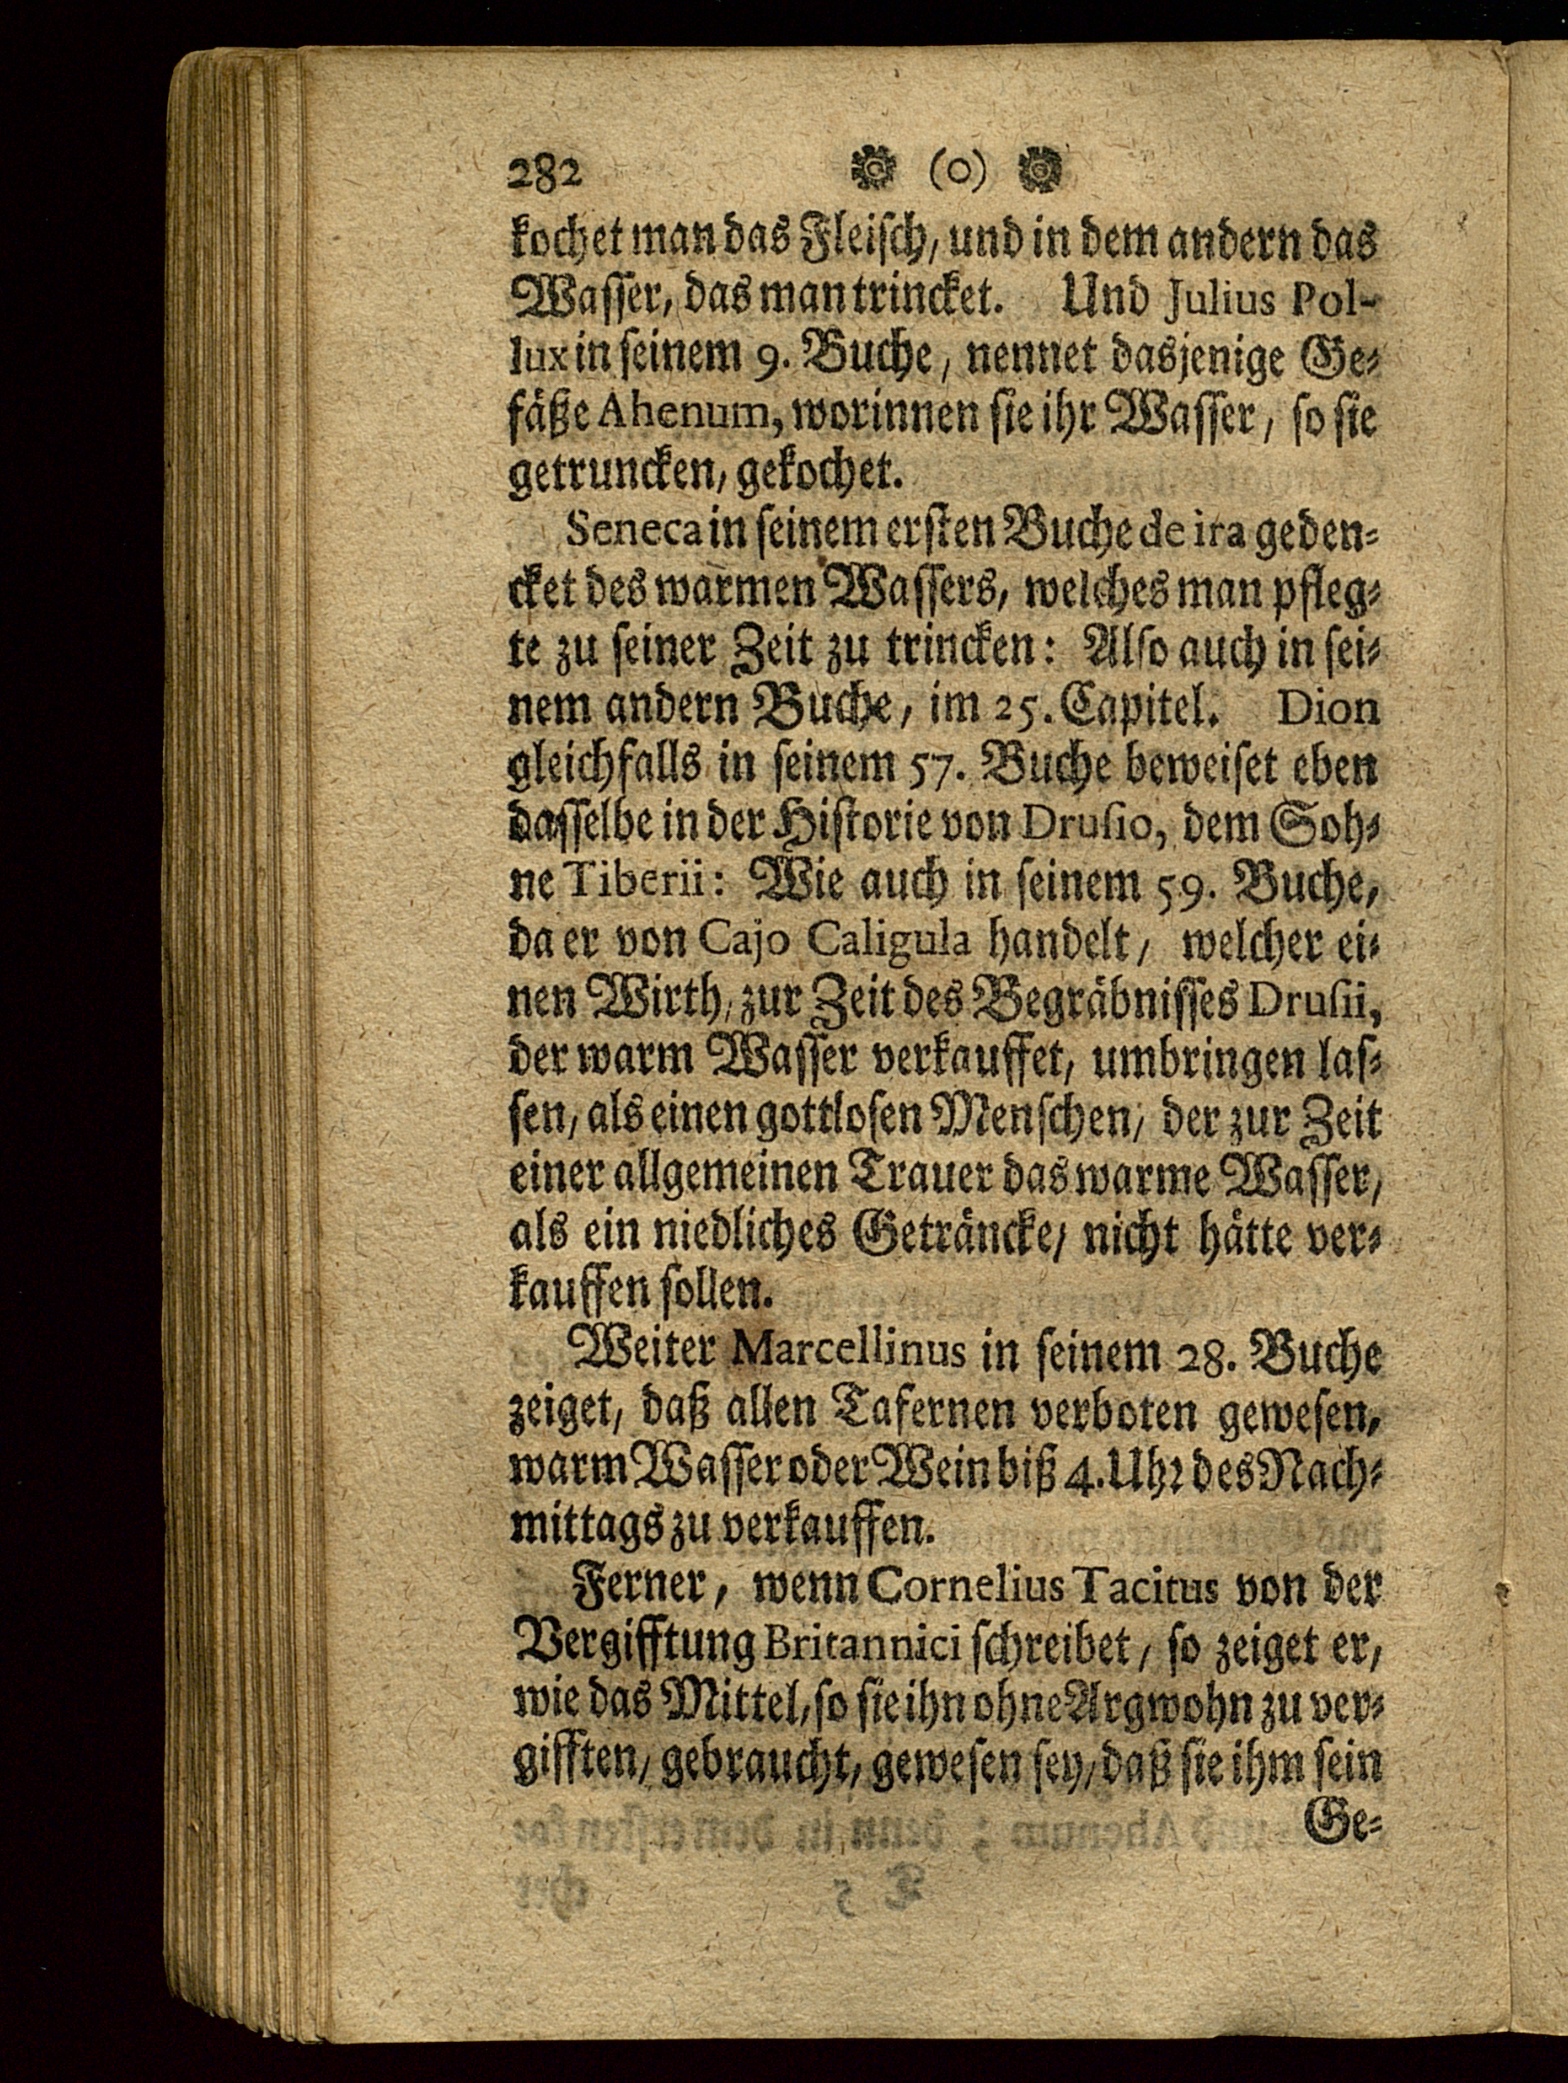 282 (o)
kochet man das Fleisch, und in dem andern das
Wasser, das man trincket. Und Julius Pol-
lux in seinem 9. Buche, nennet dasjenige Ge-
fäße Ahenum, worinnen sie ihr Wasser, so sie
getruncken, gekochet.
Seneca in seinem ersten Buche de ira geden-
cket des warmen Wassers, welches man pfleg-
te zu seiner Zeit zu trincken: Also auch in sei-
nem andern Buche, im 25. Capitel. Dion
gleichfalls in seinem 57. Buche beweiset eben
dasselbe in der Historie von Drusio, dem Soh-
ne Tiberii: Wie auch in seinem 59. Buche,
da er von Cajo Caligula handelt, welcher ei-
nen Wirth, zur Zeit des Begräbnisses Drusii,
der warm Wasser verkauffet, umbringen las-
sen, als einen gottlosen Menschen, der zur Zeit
einer allgemeinen Trauer das warme Wasser,
als ein niedliches Geträncke, nicht hätte ver-
kauffen sollen.
Weiter Marcellinus in seinem 28. Buche
zeiget, daß allen Tafernen verboten gewesen,
warm Wasser oder Wein biß 4. Uhr des Nach-
mittags zu verkauffen.
Ferner, wenn Cornelius Tacitus von der
Vergifftung Britannici schreibet, so zeiget er,
wie das Mittel, so sie ihn ohne Argwohn zu ver-
gifften, gebraucht, gewesen sey, daß sie ihm sein
Ge-